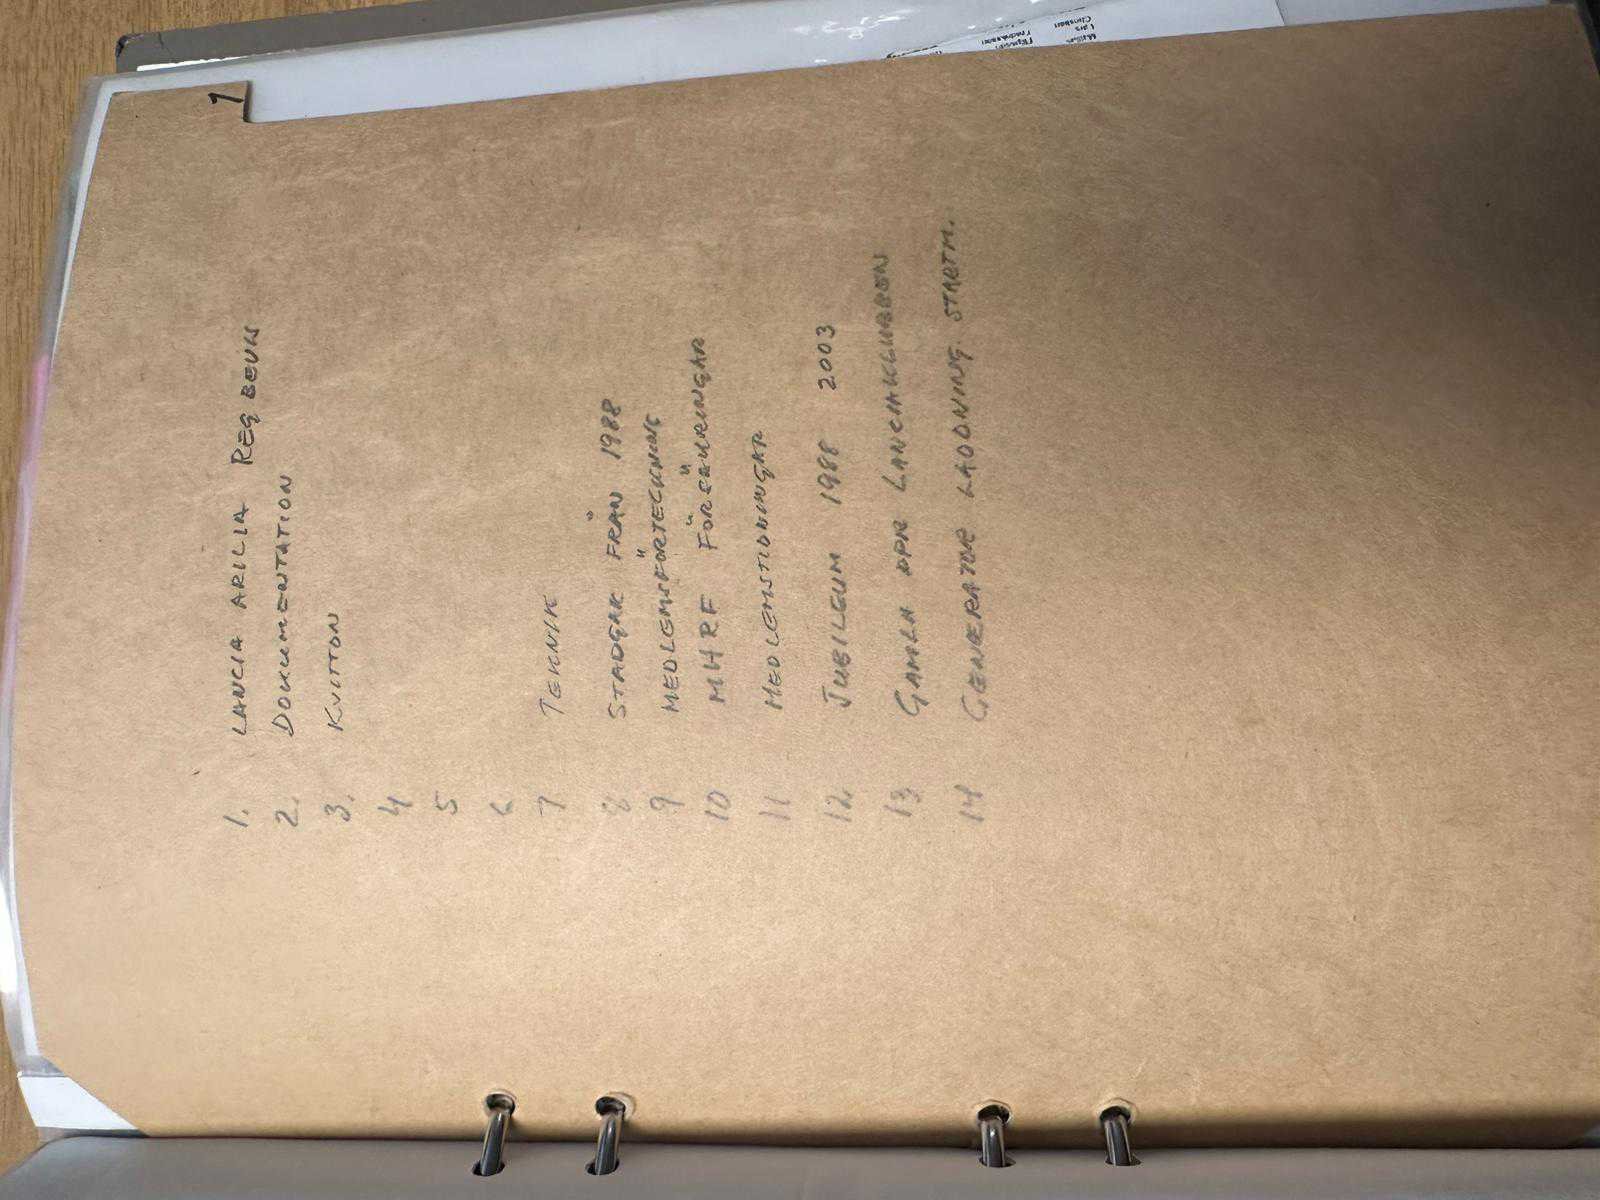 1
1. LANCIA ARILIA REG BEVIS
2. DOKUMENTATION
3. KVITTON
4
5
6
7 TEKNIK
8 STADGAR FRÅN 1988
9 MEDLEMSFÖRTECKNING
10 MHRF FÖRSÄKRINGAR
11 MEDLEMSTIDNINGAR
12. JUBILEUM 1988 2003
13 GAMLA LANCIAKLUBBEN
14 GENERATOR LADDNING. STARTM.